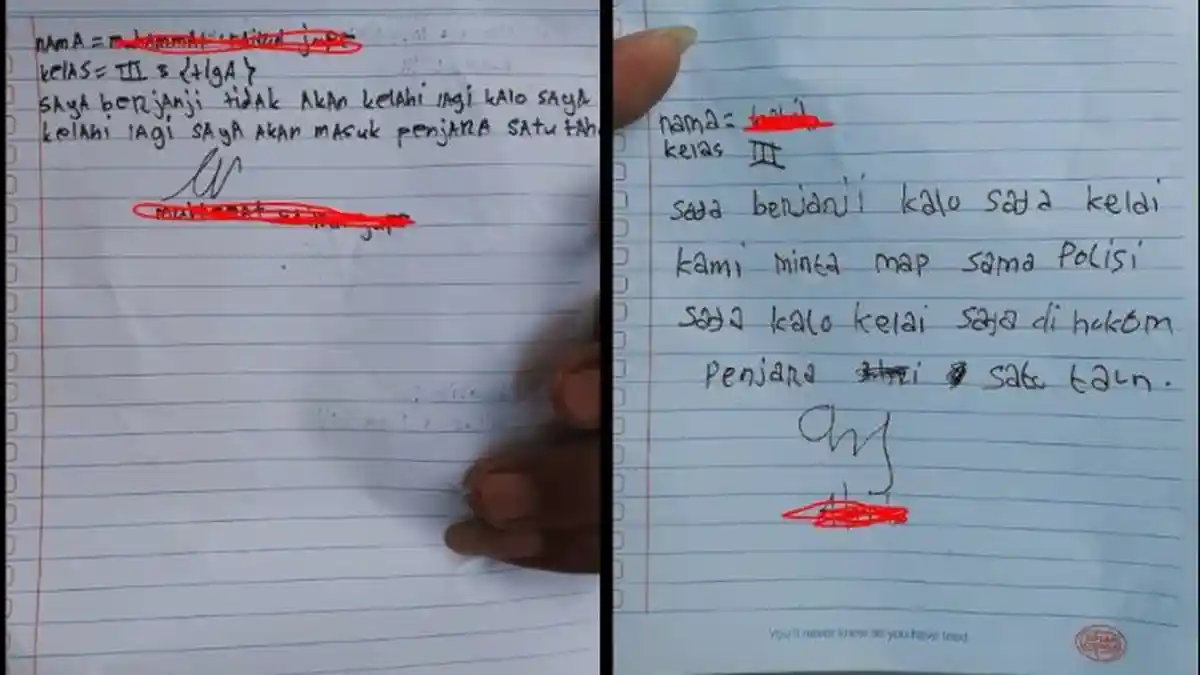 nama =
kelas = III 3 {tIgA}
SAyA benjAnji tidAk AkAn kelAhi lAgi kAlo SAyA
kelAhi lAgi SAyA AkAn mAsuk penjArA SAtu tAh
nama =
kelas III
saya benjanji kalo saya kelai
kami minta map sama Polisi
saya kalo kelai saya di hukom
Penjara satu taun.
You'll never know till you have tried